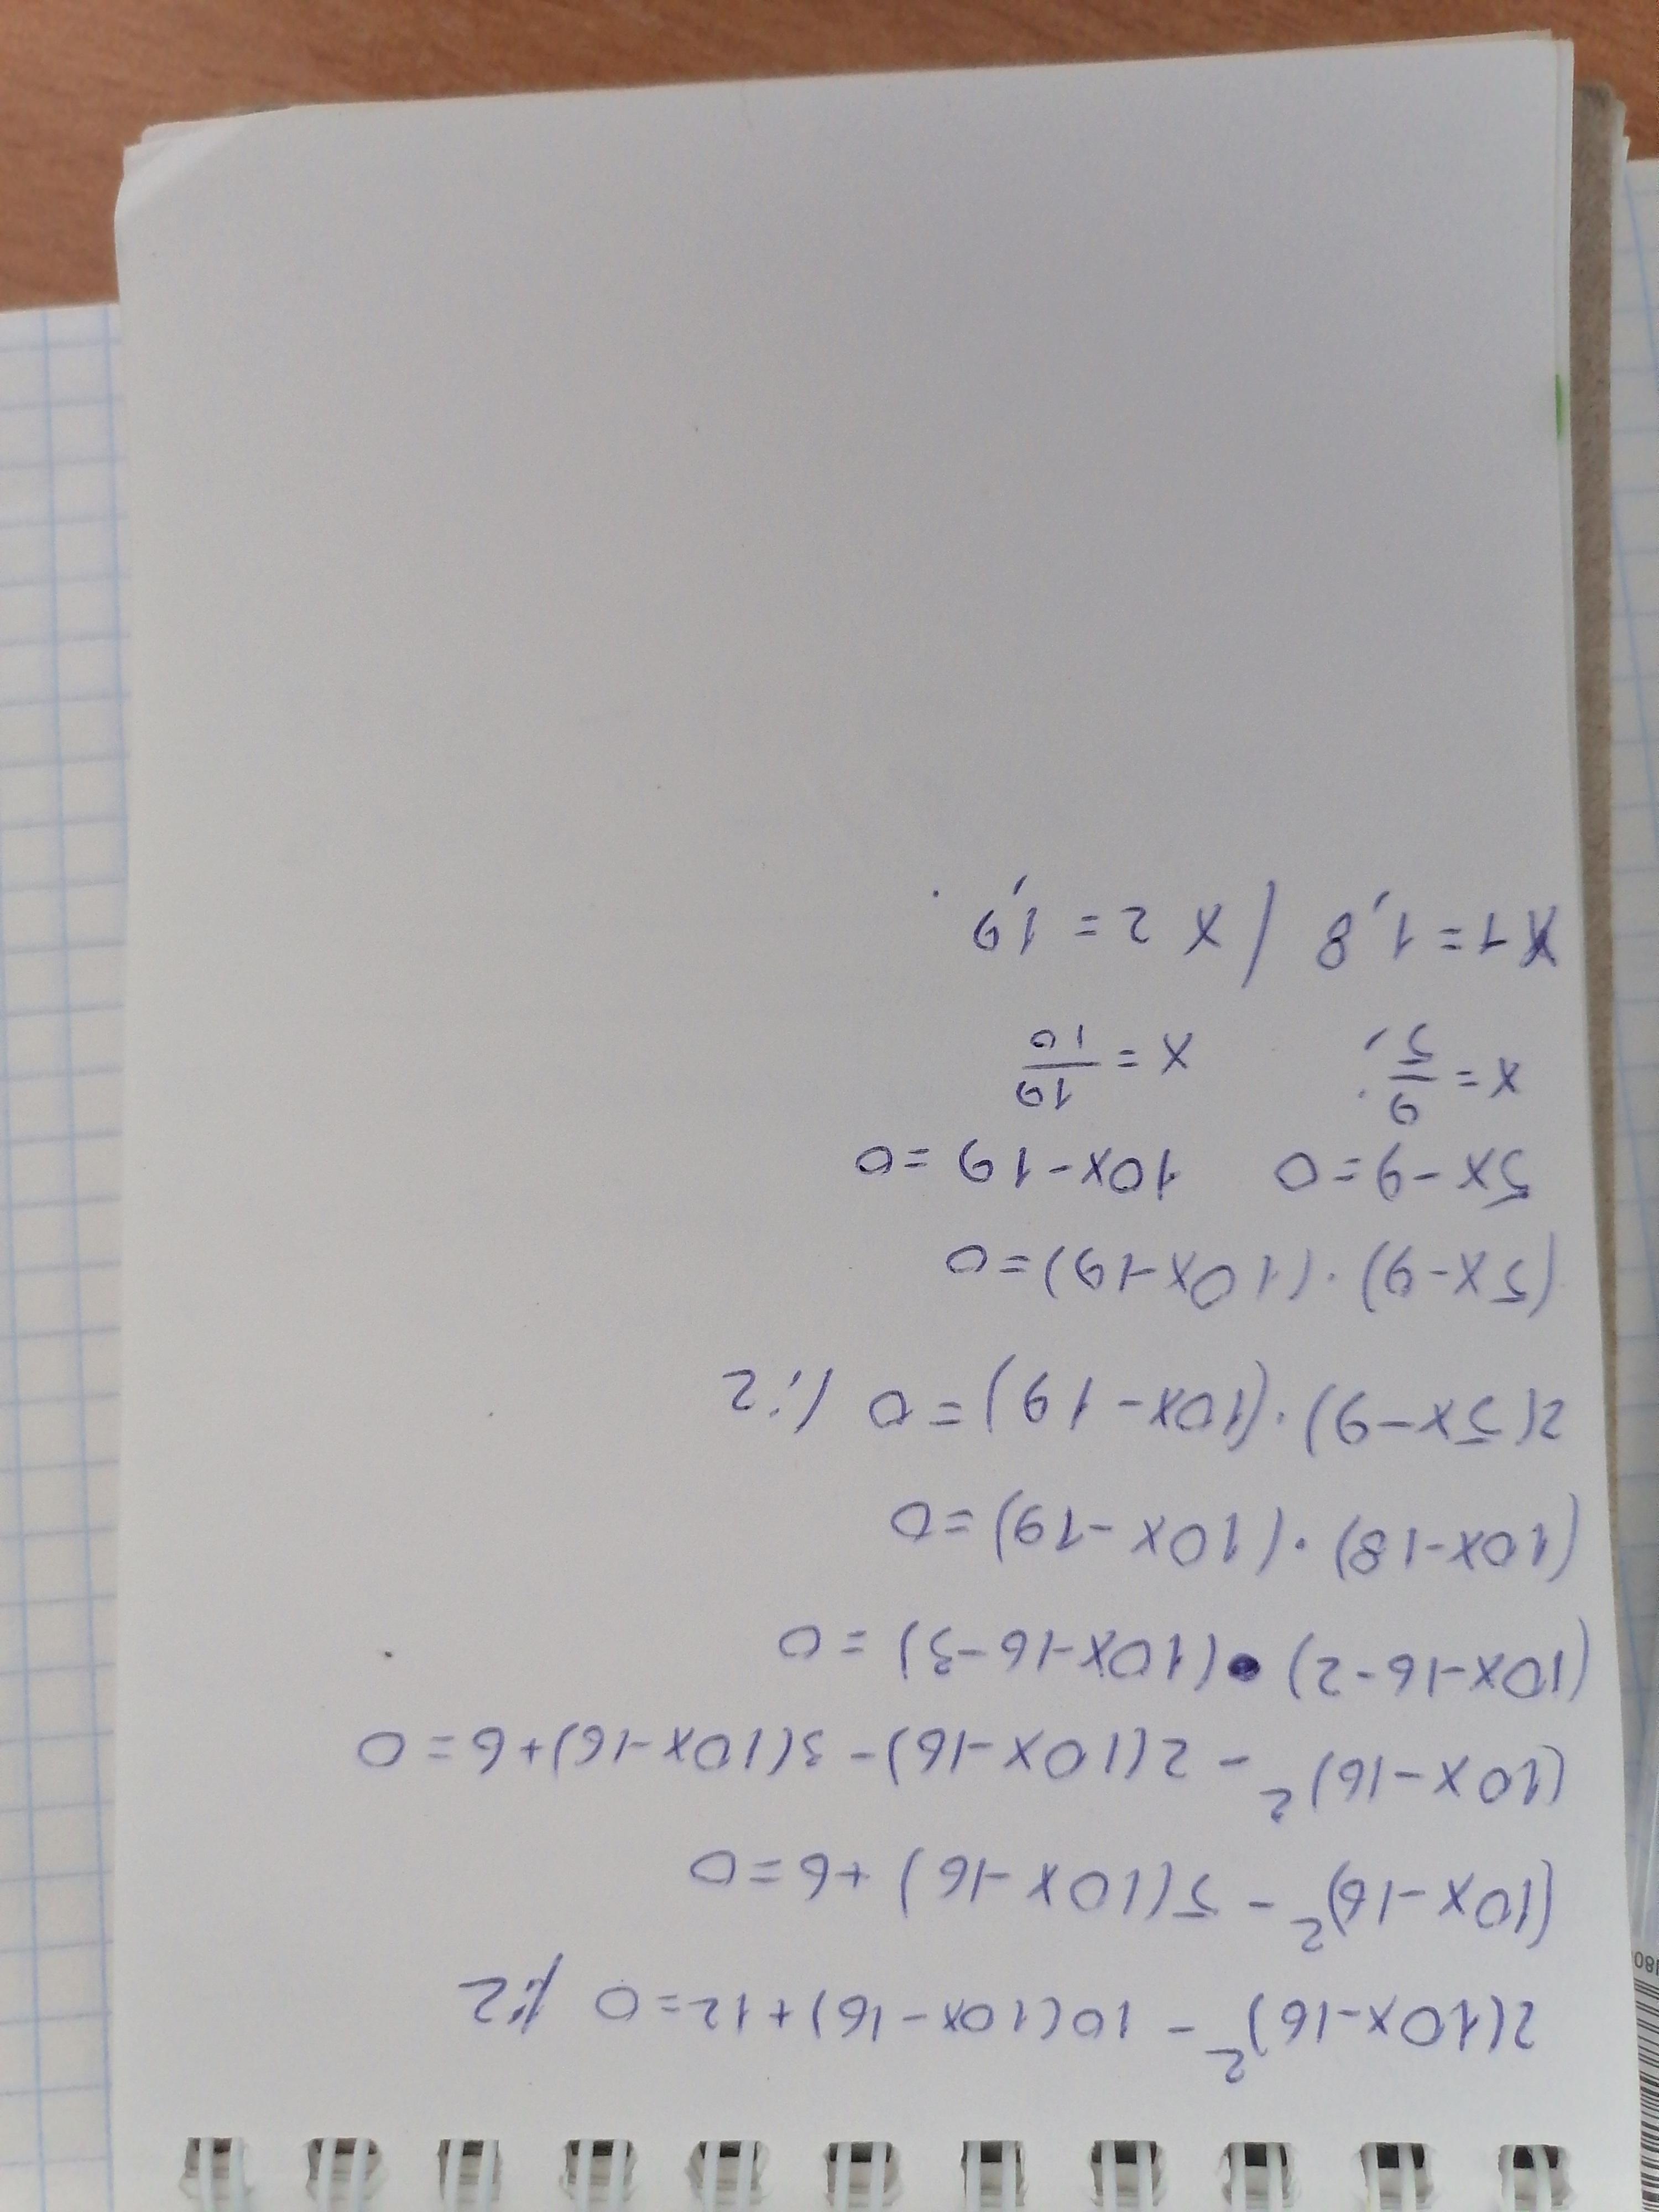 2(10x-16)² - 10(10x-16)+12=0 /:2
(10x-16)² - 5(10x-16)+6=0
(10x-16)² - 2(10x-16)-3(10x-16)+6=0
(10x-16-2)•(10x-16-3)=0
(10x-18)·(10x-19)=0
2(5x-9)·(10x-19)=0 /:2
(5x-9)·(10x-19)=0
5x-9=0 10x-19=0
x=9/5, x=19/10
x1=1,8 / x2=1,9